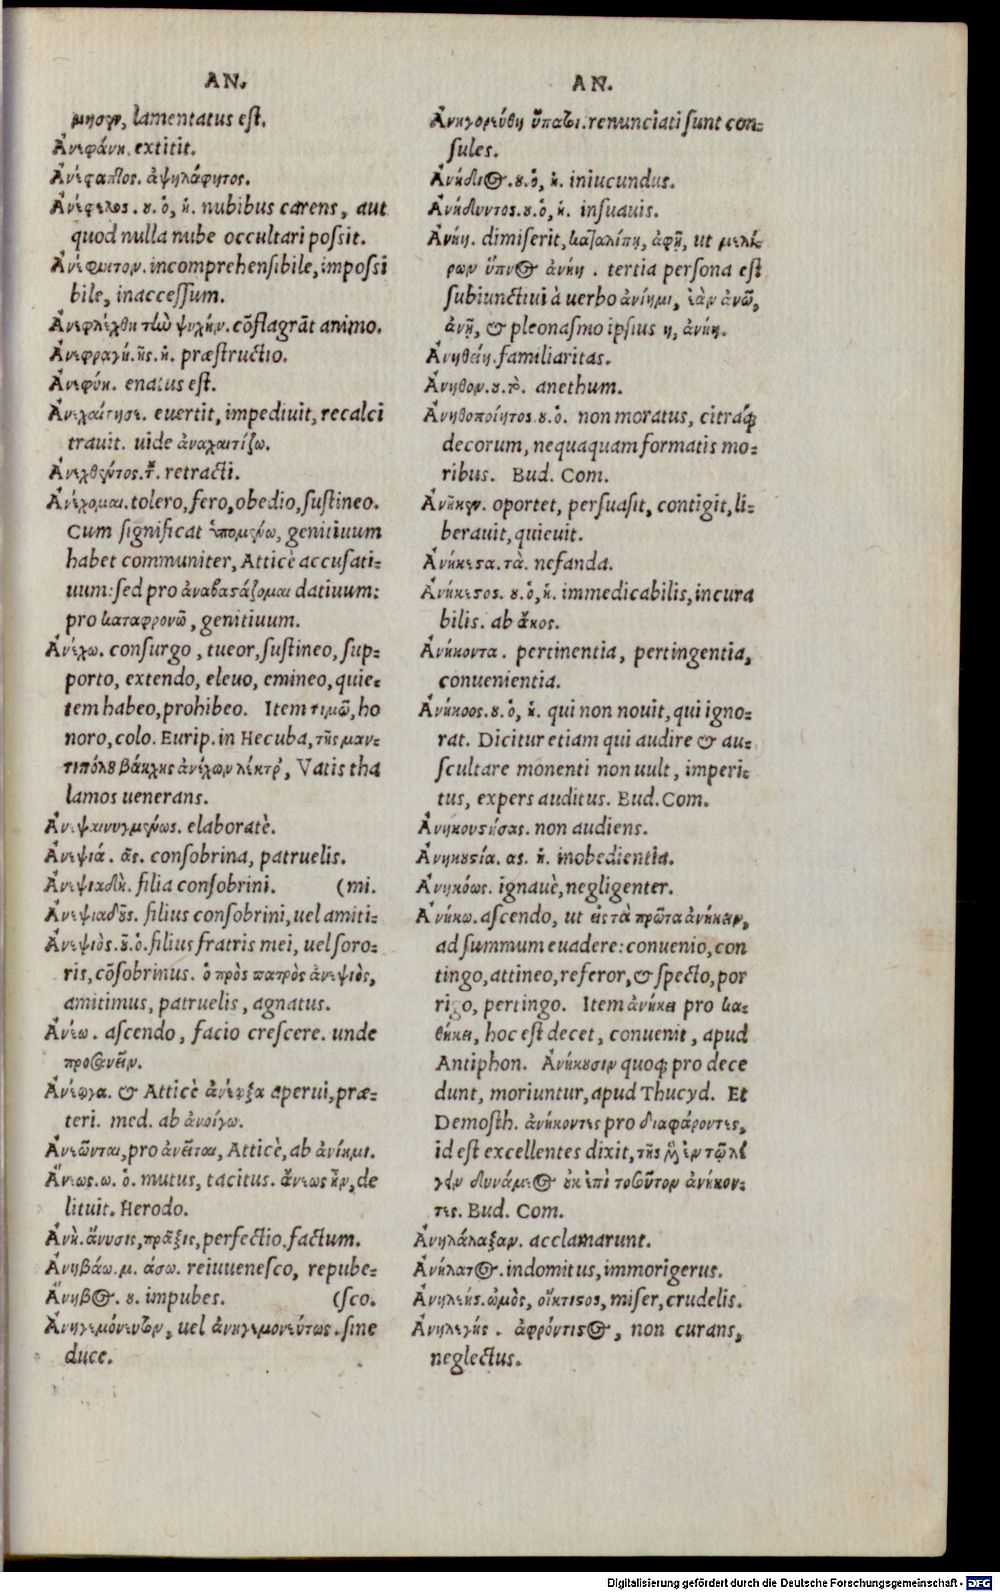 AN.
μησεν, lamentatus est.
Ἀνεφάνη. extitit.
Ἀνέφαπτος. ἀψηλάφητος.
Ἀνέφελος. ου. ὁ, ἡ. nubibus carens, aut
quod nulla nube occultari possit.
Ἀνέφικτον. incomprehensibile, impossi
bile, inaccessum.
Ἀνεφλέχθη τὴν ψυχήν. cōflagrāt animo.
Ἀνεφραγή. ῆς. ἡ. præstructio.
Ἀνεφύη. enatus est.
Ἀνεχαίτησε. euertit, impediuit, recalci
trauit. uide ἀναχαιτίζω.
Ἀνεχθέντος. τ. retracti.
Ἀνέχομαι. tolero, fero, obedio, sustineo.
Cum significat ὑπομένω, genitiuum
habet communiter, Atticè accusati-
uum: sed pro ἀναβαστάζομαι datiuum:
pro καταφρονῶ, genitiuum.
Ἀνέχω. consurgo, tueor, sustineo, sup-
porto, extendo, eleuo, emineo, quie-
tem habeo, prohibeo. Item τιμῶ, ho
noro, colo. Eurip. in Hecuba, τῆς μαν-
τιπόλου βάκχης ἀνέχων λέκτρ', Vatis tha
lamos uenerans.
Ἀνεψαινυγμένως. elaboratè.
Ἀνεψιά. ᾶς. consobrina, patruelis.
Ἀνεψιαδῆ. filia consobrini. (mi.
Ἀνεψιαδοῦς. filius consobrini, uel amiti-
Ἀνεψιὸς. οῦ. ὁ. filius fratris mei, uel soro-
ris, cōsobrinus. ὁ πρὸς πατρὸς ἀνεψιὸς,
amitimus, patruelis, agnatus.
Ἀνέω. ascendo, facio crescere. unde
προσανεῖν.
Ἀνέῳγα. & Atticè ἀνέῳξα aperui, præ-
teri. med. ab ἀνοίγω.
Ἀνεῶνται, pro ἀνεῖται, Atticè, ab ἀνίημι.
Ἄνεως. ω. ὁ. mutus, tacitus. ἄνεως ἦν, de
lituit. Herodo.
Ἀνὴ. ἄνυσις, πρᾶξις, perfectio. factum.
Ἀνηβάω. μ. άσω. reiuuenesco, repube-
Ἄνηβος. ου. impubes. (sco.
Ἀνηγεμόνευτον, uel ἀνηγεμονεύτως. sine
duce.
AN.
Ἀνηγορεύθη ὕπατοι. renunciati sunt con-
sules.
Ἀνήδιος. ου. ὁ, ἡ. iniucundus.
Ἀνήδυντος. ου. ὁ, ἡ. insuauis.
Ἀνήῃ. dimiserit, καταλίπῃ, ἀφῇ, ut μελί-
ρων ὕπνος ἀνήῃ. tertia persona est
subiunctiui à uerbo ἀνίημι, ἐὰν ἀνῶ,
ἀνῇ, & pleonasmo ipsius η, ἀνήῃ.
Ἀνηθείη. familiaritas.
Ἄνηθον. ου. τὸ. anethum.
Ἀνηθοποίητος. ου. ὁ. non moratus, citraq;
decorum, nequaquam formatis mo-
ribus. Bud. Com.
Ἀνῆκεν. oportet, persuasit, contigit, li-
berauit, quieuit.
Ἀνήκεστα. τὰ. nefanda.
Ἀνήκεστος. ου. ὁ, ἡ. immedicabilis, incura
bilis. ab ἄκος.
Ἀνήκοντα. pertinentia, pertingentia,
conuenientia.
Ἀνήκοος. ου. ὁ, ἡ. qui non nouit, qui igno-
rat. Dicitur etiam qui audire & au-
scultare monenti non uult, imperi-
tus, expers auditus. Bud. Com.
Ἀνηκουστήσας. non audiens.
Ἀνηκουστία. ας. ἡ. inobedientia.
Ἀνηκόως. ignauè, negligenter.
Ἀνήκω. ascendo, ut εἰς τὰ πρῶτα ἀνήκειν,
ad summum euadere: conuenio, con
tingo, attineo, referor, & specto, por
rigo, pertingo. Item ἀνήκει pro κα-
θήκει, hoc est decet, conuenit, apud
Antiphon. Ἀνήκουσιν quoq; pro dece
dunt, moriuntur, apud Thucyd. Et
Demosth. ἀνήκοντες pro διαφέροντες,
id est excellentes dixit, τῆς ἐν τῷ λέ
γειν δυνάμεως οὐκ ἐπὶ τοσοῦτον ἀνήκον-
τες. Bud. Com.
Ἀνηλάλαξαν. acclamarunt.
Ἀνήλατος. indomitus, immorigerus.
Ἀνηλεής. ὠμὸς, οἴκτιστος, miser, crudelis.
Ἀνηλεγής. ἀφρόντιστος, non curans,
neglectus.
Digitalisierung gefördert durch die Deutsche Forschungsgemeinschaft - DFG